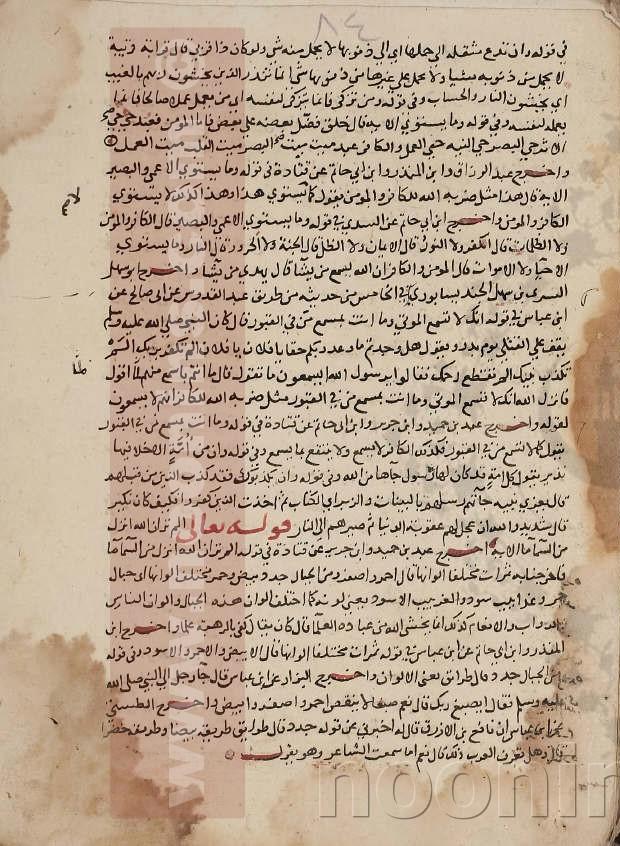 ٨٤
في قوله وان تدع مثقلة الى حملها اي الى ذنوبها لا يحمل منه شي ولو كان ذا قربي قال قرابة قريبة
لا يحمل من ذنوبه شيئا ولا يحمل علي غيرها من ذنوبها شي انما تنذر الذين يخشون ربهم بالغيب
اي يخشون النار والحساب وفي قوله ومن تزكى فانما يتزكى لنفسه اي من يعمل عملا صالحا فانما
يعمله لنفسه وفي قوله وما يستوي الاية قال خلق فضل بعضه علي بعض فاما المومن فعبد حي
الاثر حي البصر حي النية حي العمل والكافر عبد ميت ميت البصر ميت القلب ميت العمل
واخرج عبد الرزاق وابن المنذر وابن ابي حاتم عن قتادة في قوله وما يستوي الاعمي والبصير
الاية قال هذا مثل ضربه الله للكافر والمومن يقول كما لا يستوي هذا وهذا كذلك لا يستوي
الكافر والمومن واخرج ابن ابي حاتم عن السدي في قوله وما يستوي الاعمي والبصير قال الكافر والمومن
ولا الظلمات قال الكفر ولا النور قال الايمان ولا الظل قال الجنة ولا الحرور قال النار وما يستوي
الاحيا ولا الاموات قال المومن والكافر ان الله يسمع من يشا قال يهدي من يشا واخرج ابو سهل
السري بن سهل الجنديسابوري في الخامس من حديثه من طريق عبد القدوس عن ابي صالح عن
ابن عباس في قوله انك لا تسمع الموتي وما انت بمسمع من في القبور قال كان النبي صلي الله عليه وسلم
يقف علي القتلي يوم بدر ويقول هل وجدتم ما وعد ربكم حقا يا فلان يا فلان الم تكفر بربك الم
تكذب نبيك الم تقطع رحمك فقالوا يرسول الله ايسمعون ما تقول قال ما انتم باسمع منهم لما اقول
فانزل الله انك لا تسمع الموتي وما انت بمسمع من في القبور مثل ضربه الله للكفار انهم لا يسمعون
لقوله واخرج عبد بن حميد وابن جرير وابن ابي حاتم عن قتادة في قوله وما انت بمسمع من في القبور
يقول كما لا تسمع من في القبور فكذلك الكافر لا يسمع ولا ينتفع بما يسمع وفي قوله وان من امة الا خلا فيها
نذير يقول كل امة قد كان لها رسول جاها من الله وفي قوله وان يكذبوك فقد كذب الذين من قبلهم
قال يعزي نبيه جاتهم رسلهم بالبينات والزبر اي الكتاب ثم اخذت الذين كفروا فكيف كان نكير
قال شديد والله ان عجل لهم عقوبة الدنيا ثم صيرهم الى النار قوله تعالي الم تر ان الله انزل
من السما ما الاية اخرج عبد بن حميد وابن جرير عن قتادة في قوله الم تر ان الله انزل من السما ما
فاخرجنا به ثمرات مختلفا الوانها قال احمر واصفر ومن الجبال جدد بيض وحمر مختلف الوانها اي جبال
حمر وغرابيب سود والغربيب الاسود يعني لونه كما اختلف الوان هذه الجبال والوان الناس
والدواب والانعام كذلك انما يخشى الله من عباده العلما قال كان يقال كفي بالرهبة علما واخرج ابن
المنذر وابن ابي حاتم عن ابن عباس في قوله ثمرات مختلفا الوانها قال الابيض والاحمر والاسود وفي قوله
ومن الجبال جدد قال طرائق يعني الالوان واخرج البزار عن ابن عباس قال جا رجل الى النبي صلى الله
عليه وسلم فقال ايصبغ ربك قال نعم صبغا لا ينفض احمر واصفر وابيض واخرج الطستي
عن ابن عباس ان نافع بن الازرق قال له اخبرني عن قوله جدد قال طرايق طريقة بيضا وطريقة خضرا
قال وهل تعرف العرب ذلك قال نعم اما سمعت الشاعر وهو يقول
noonir